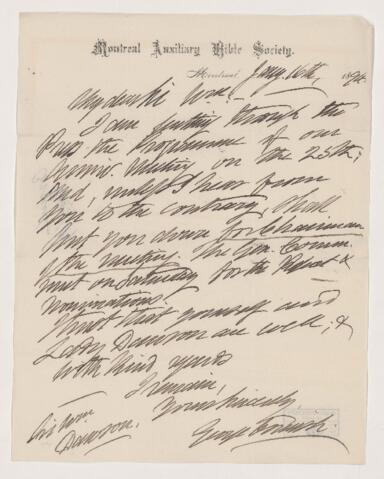 Montreal Auxiliary Bible Society.
Montreal, Jany. 16th, 1894.
My dear Sir Wm.:
I am putting through the
Press the Programme of our
Anniv. Meeting on the 25th;
and, unless I hear from
you to the contrary, shall
put you down for Chairman
of the meeting. The Gen. Comm.
met on Saturday for the Report &
nominations.
Trust that yourself and
Lady Dawson are well; &
with kind regards
I remain,
Yours sincerely,
George
Sir Wm.
Dawson.